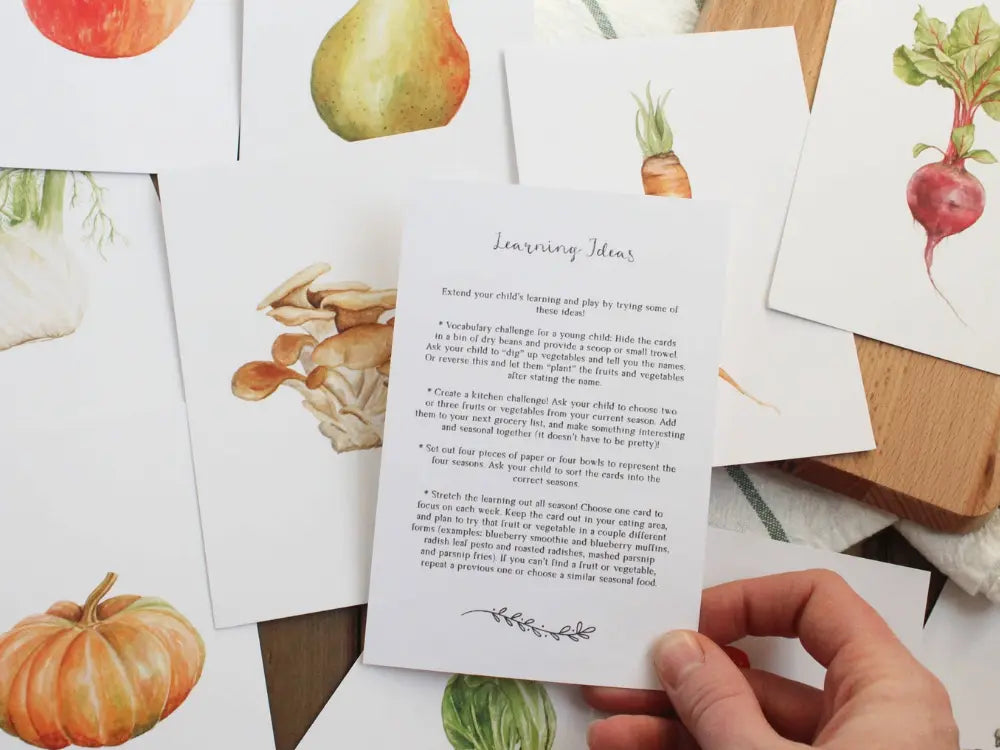 Learning Ideas
Extend your child's learning and play by trying some of
these ideas!
* Vocabulary challenge for a young child: Hide the cards
in a bin of dry beans and provide a scoop or small trowel.
Ask your child to "dig" up vegetables and tell you the names.
Or reverse this and let them "plant" the fruits and vegetables
after stating the name.
* Create a kitchen challenge! Ask your child to choose two
or three fruits or vegetables from your current season. Add
them to your next grocery list, and make something interesting
and seasonal together (it doesn't have to be pretty)!
* Set out four pieces of paper or four bowls to represent the
four seasons. Ask your child to sort the cards into the
correct seasons.
* Stretch the learning out all season! Choose one card to
focus on each week. Keep the card out in your eating area,
and plan to try that fruit or vegetable in a couple different
forms (examples: blueberry smoothie and blueberry muffins,
radish leaf pesto and roasted radishes, mashed parsnip
and parsnip fries). If you can't find a fruit or vegetable,
repeat a previous one or choose a similar seasonal food.